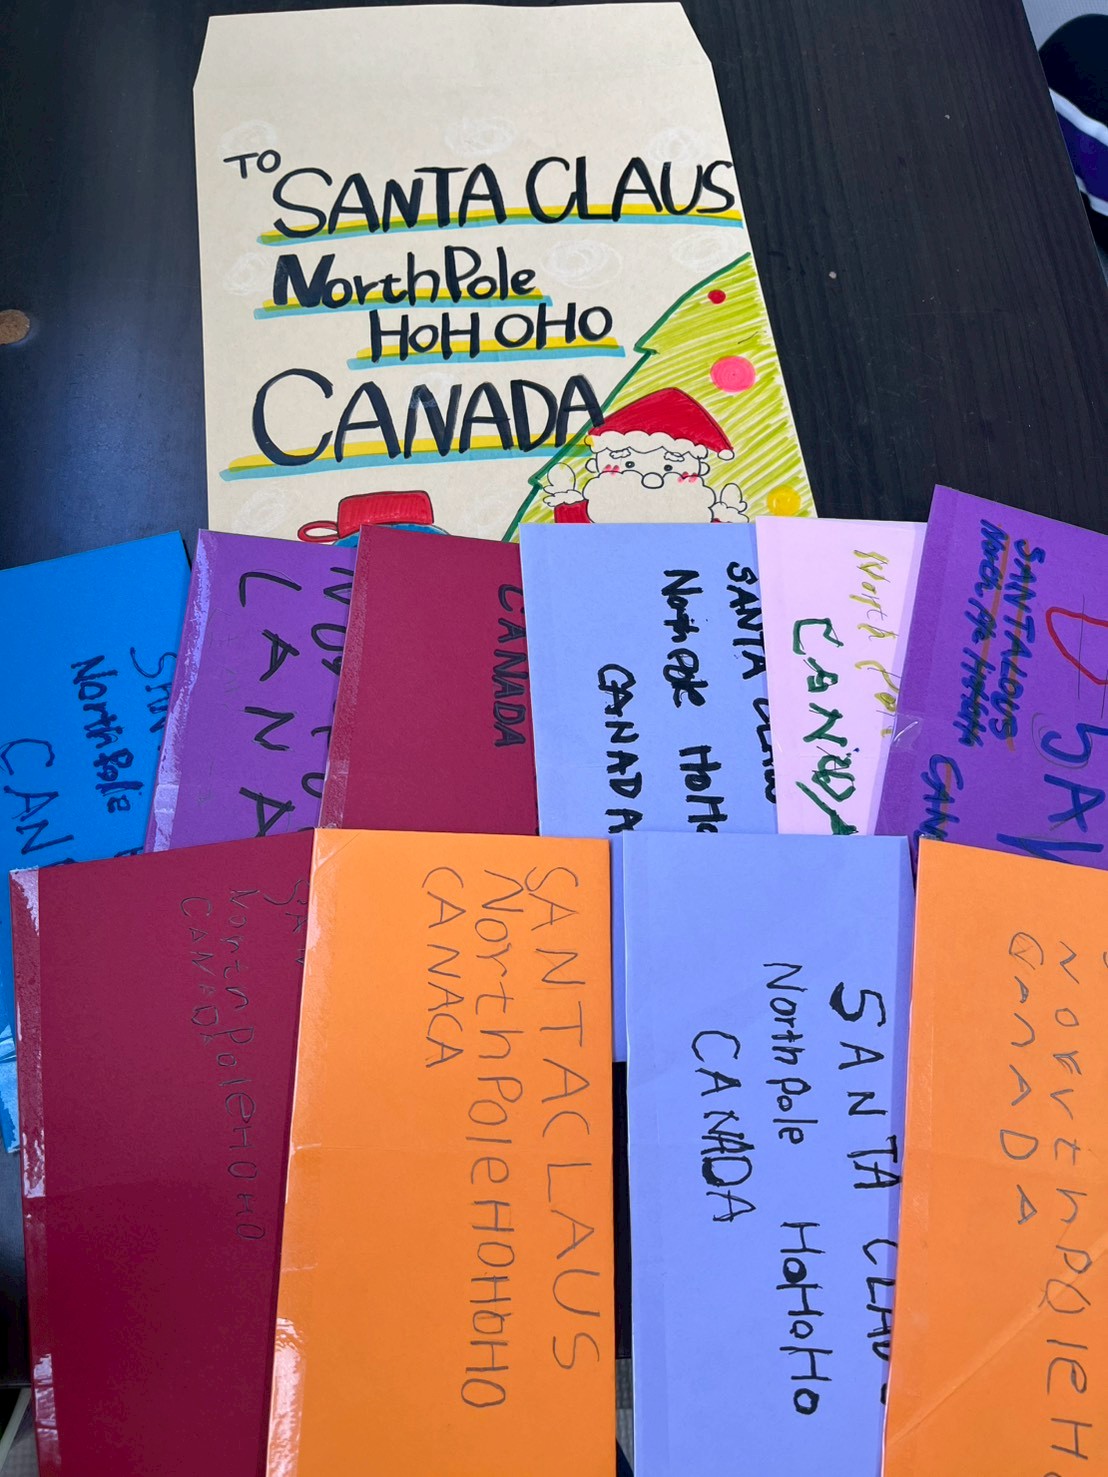 TO
SANTA CLAUS
North Pole
HoH OHO
CANADA
North Pole
CAN
CANA
CANADA
SANTA CLAUS
North Pole HoHo
CANADA
North Pole
CANADA
SANTALOUS
CAN
NorthPoleHOHO
CANADA
SANTACLAUS
NorthPoleHOHOHO
CANACA
SANTA CLAU
North Pole HoHoHo
CANADA
NorthPoleH
CANADA